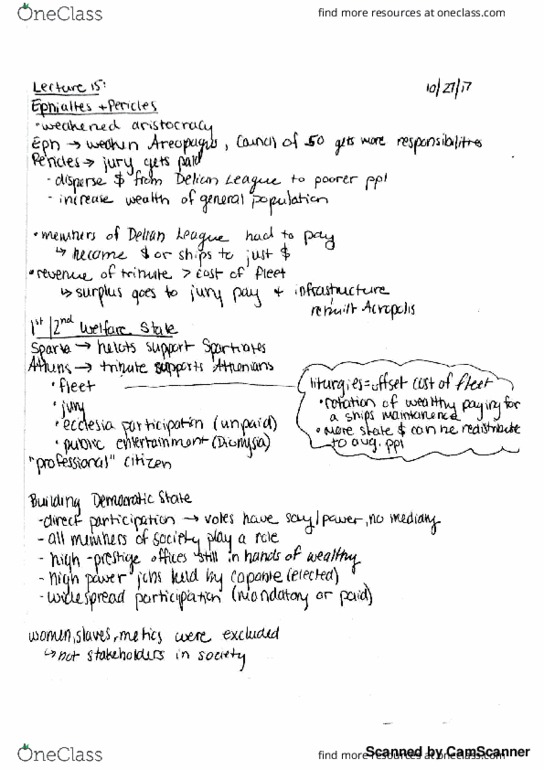 OneClass
find more resources at oneclass.com
Lecture 15:
10/27/17
Ephialtes + Pericles
• weakened aristocracy
Eph → weaken Areopagus, Council of 50 gets more responsibilities
Pericles → jury gets paid
- disperse $ from Delian League to poorer ppl
- increase wealth of general population
• members of Delian League had to pay
↳ became $ or ships to just $
• revenue of tribute > cost of fleet
↳ surplus goes to jury pay + infrastructure
rebuilt Acropolis
1st/2nd Welfare State
Sparta → helots support Spartiates
Athens → tribute supports Athenians
• fleet
• jury
• ecclesia participation (unpaid)
• public entertainment (Dionysia)
"professional" citizen
liturgies = offset cost of fleet
• rotation of wealthy paying for
a ships maintenence
• more state $ can be redistribute
to avg. ppl
Building Democratic State
- direct participation → votes have say/power, no mediary
- all members of society play a role
- high-prestige offices still in hands of wealthy
- "high power" jobs held by capable (elected)
- widespread participation (mandatory or paid)
women, slaves, metics were excluded
↳ not stakeholders in society
OneClass
find more resources at oneclass.com
Scanned by CamScanner